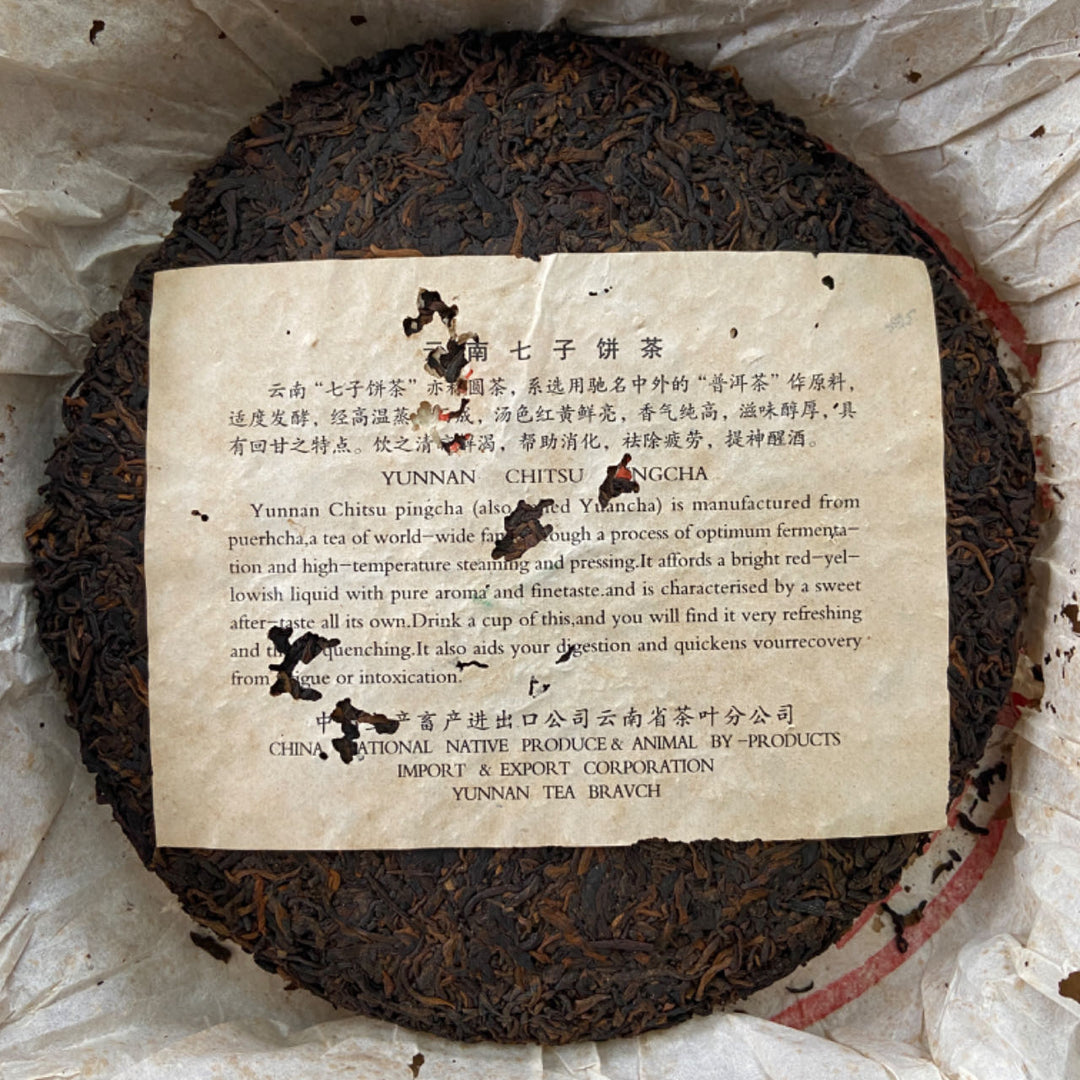 云南七子饼茶
云南“七子饼茶”亦 圆茶，系选用驰名中外的“普洱茶”作原料，
适度发酵，经高温蒸 成，汤色红黄鲜亮，香气纯高，滋味醇厚，具
有回甘之特点。饮之清 解渴，帮助消化，祛除疲劳，提神醒酒。
YUNNAN CHITSU NGCHA
Yunnan Chitsu pingcha (also Yuancha) is manufactured from
puerhcha,a tea of world-wide a process of optimum fermenta-
tion and high-temperature steaming and pressing.It affords a bright red-yel-
lowish liquid with pure aroma and finetaste.and is characterised by a sweet
after-taste all its own.Drink a cup of this,and you will find it very refreshing
and quenching.It also aids your digestion and quickens vourrecovery
from or intoxication.
中 产畜产进出口公司云南省茶叶分公司
CHINA NATIONAL NATIVE PRODUCE & ANIMAL BY-PRODUCTS
IMPORT & EXPORT CORPORATION
YUNNAN TEA BRAVCH